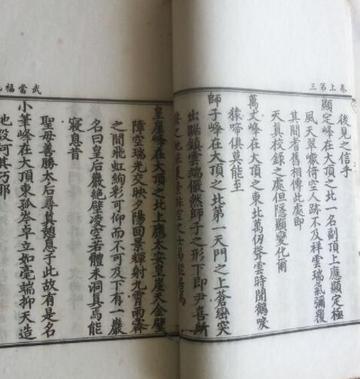 卷上第三
後見之信乎
顯定峰在大頂之北一名副頂上應顯定極
風天翠巘倚空人跡不及祥雲瑞氣彌覆
其間者舊相傳此處即
天真校錄之處但隱顯變化爾
萬丈峰在大頂之東北萬仞聳雲時聞鶴唳
猿啼俱莫能至
師子峰在大頂之北第一天門之上蒼巒突
出臨鎮雲端儼然師子之形下即尹喜所
皇崖峰在大頂之北上應太安皇崖天金壁
障空瑞光交映夕陽回景輝射九霄雨霽
之間飛虹絢彩可仰而不可及下有一巖
名曰皇后嚴絕壁凌雲若體未洞真焉能
寢息昔
聖母善勝太后尋真憩息于此故有是名
小筆峰在大頂東孤峇卓立如毫端抑天造
地設何其巧耶
武當福地